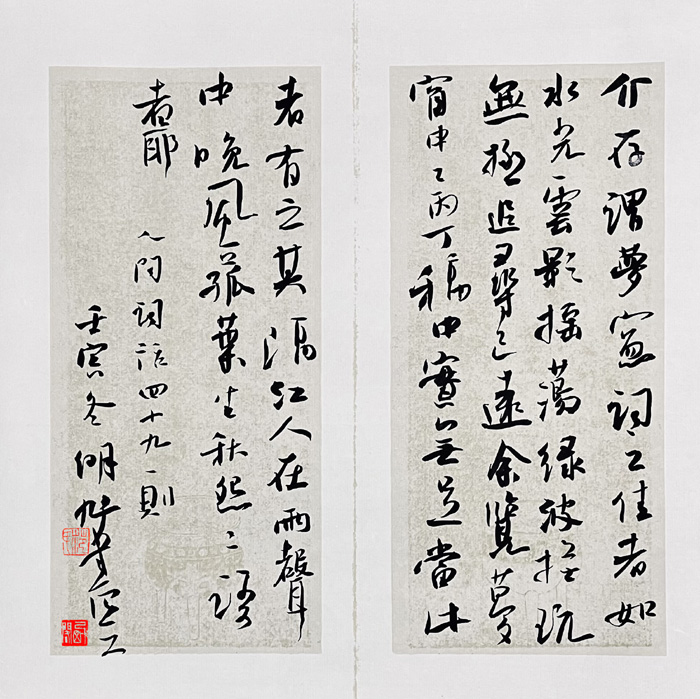 介存謂夢窗詞之佳者如
水光雲影搖蕩緑波撫玩
無極追尋已遠余覽夢
窗甲乙丙丁稿中實無足當此
者有之其隔江人在雨聲
中晚風菰葉生秋怨二語
者耶
人间詞話四十九一則
壬寅冬明